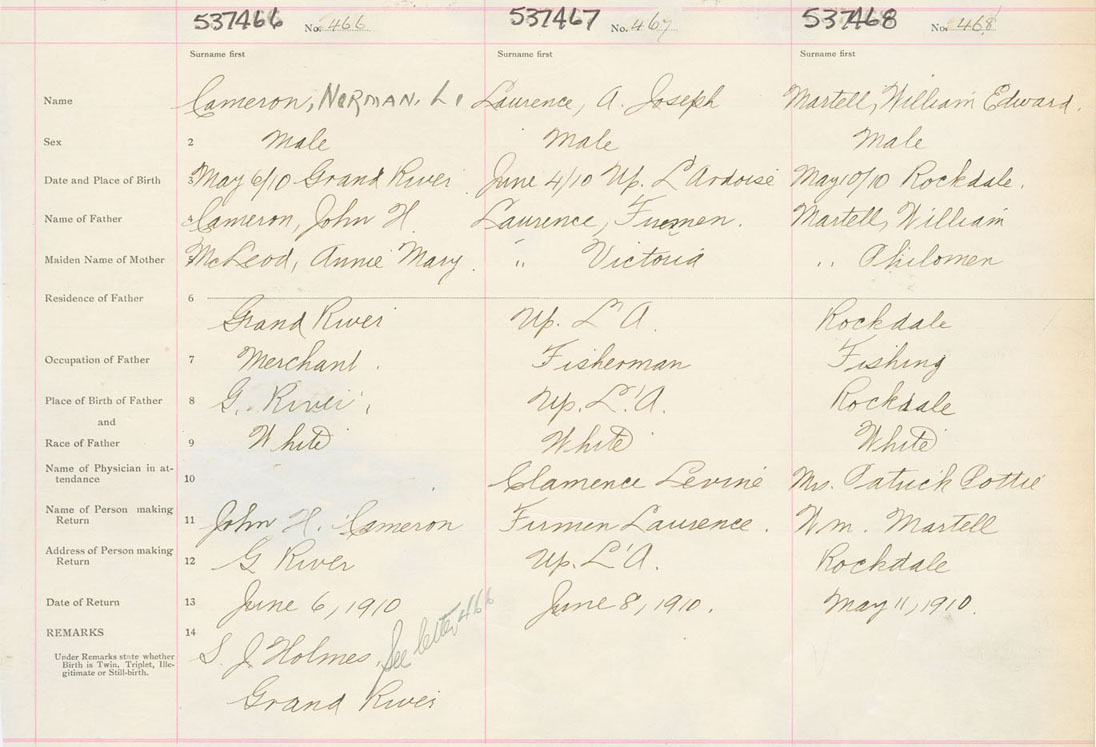 537466 No. 466 537467 No. 467 537468 No. 468
Surname first Surname first Surname first
Name Cameron, NORMAN. L. Laurence, A. Joseph Martell, William Edward.
Sex 2 Male Male Male
Date and Place of Birth 3 May 6/10 Grand River June 4/10 Up. L'Ardoise May 10/10 Rockdale.
Name of Father 4 Cameron, John H. Laurence, Firmen. Martell, William
Maiden Name of Mother 5 McLeod, Annie Mary. " Victoria " Philomen
Residence of Father 6
Grand River Up. L'A. Rockdale
Occupation of Father 7 Merchant. Fisherman Fishing
Place of Birth of Father 8 G. River, Up. L'A. Rockdale
and
Race of Father 9 White White White
Name of Physician in at-
tendance 10 Clamence Levine Mrs. Patrick Pottie
Name of Person making
Return 11 John H. Cameron Firmen Laurence. Wm. Martell
Address of Person making
Return 12 G River Up. L'A. Rockdale
Date of Return 13 June 6, 1910 June 8, 1910. May 11, 1910.
REMARKS 14
Under Remarks state whether
Birth is Twin, Triplet, Ille-
gitimate or Still-birth.
S. J. Holmes,
Grand River
See letter 466